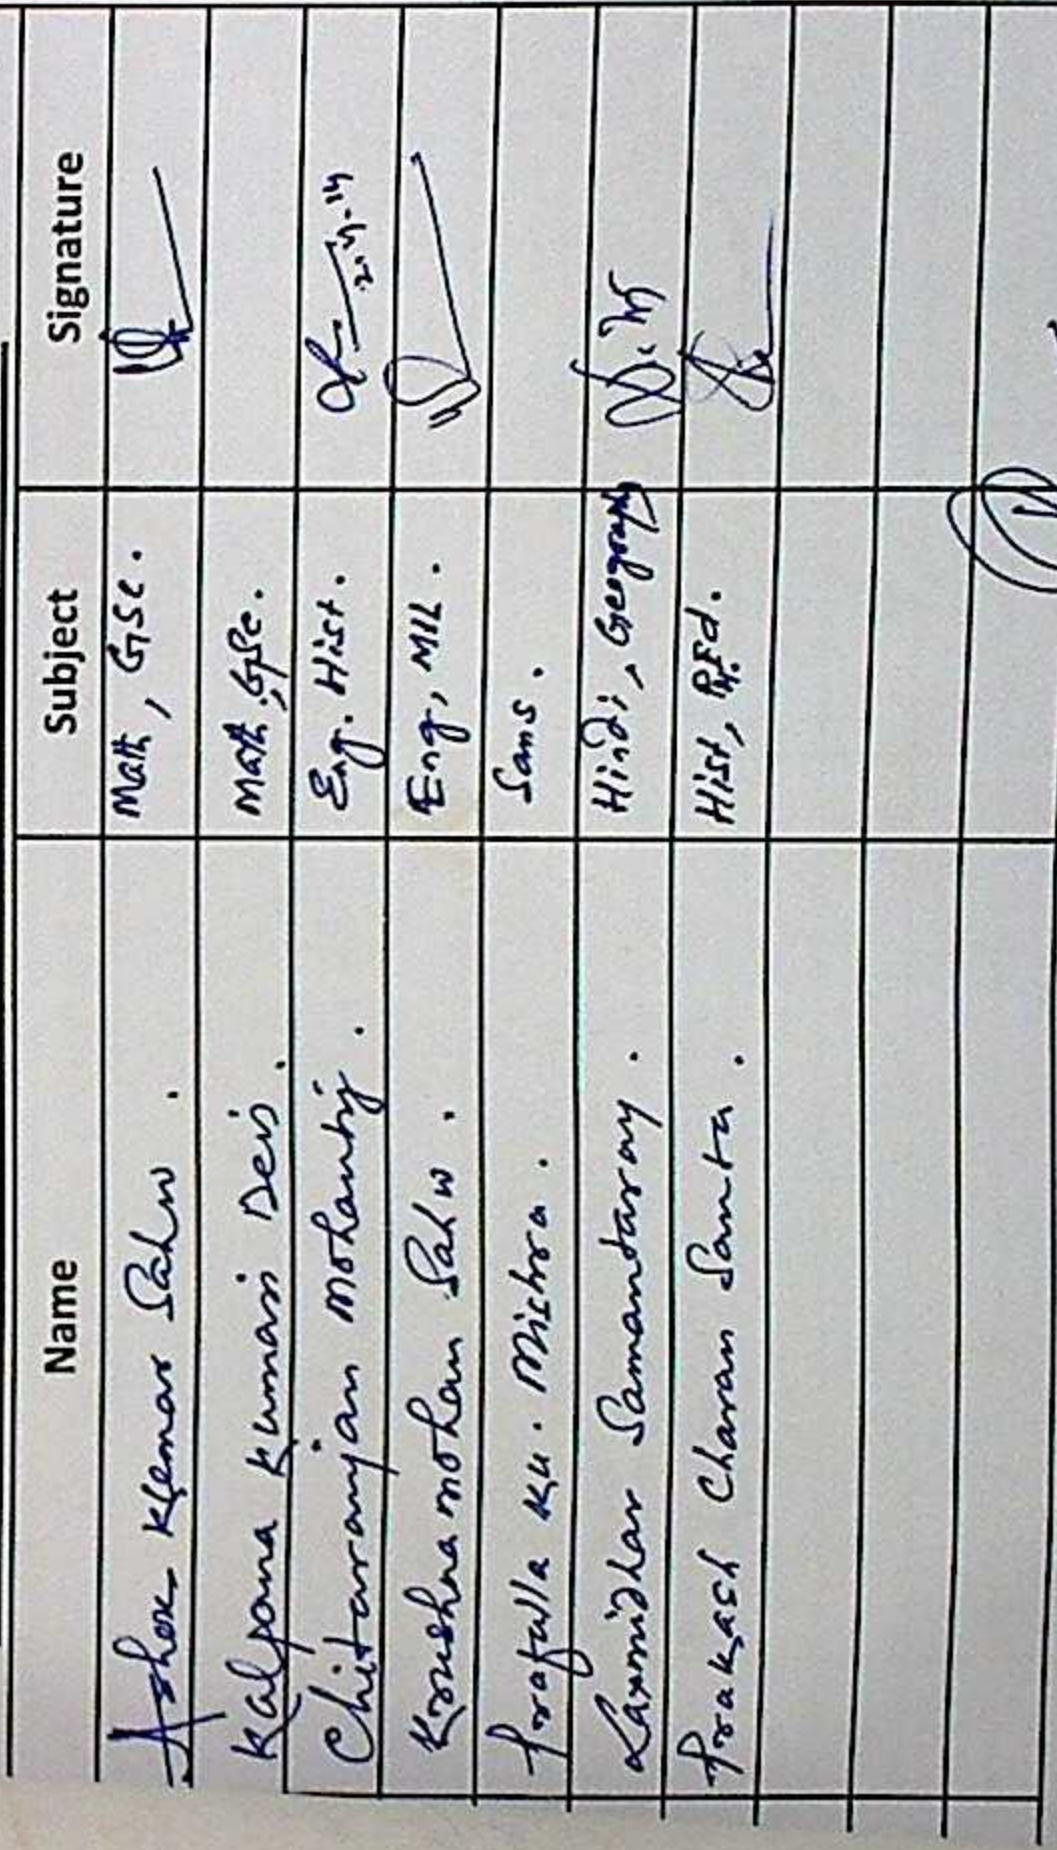 Name Subject Signature
Ashok Kumar Sahu. Math, GSc.
Kalpana Kumari Devi. Math, GSc.
Chitaranjan Mohanty. Eng. Hist.
Krushna mohan Sahu. Eng, MIL.
Prafulla Ku. Mishra. Sans.
Laxmidhar Samantaray. Hindi, Geography
Prakash Charan Samta. Hist, P.Ed.